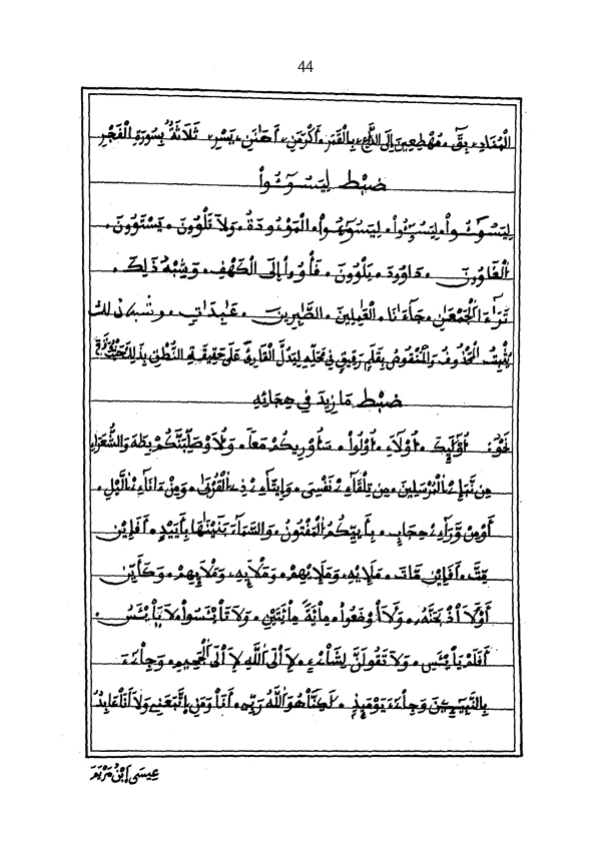 44
الْمُنَادِۦ بِقَ ۰ مُهْطِعِينَ إِلَى الدَّاعِۦ بِالْقَمَرِ ۰ أَكْرَمَنِۦ ۰ أَهَٰنَنِۦ ۰ يَسْرِۦ ۰ ثَلَاثَةٌ بِسُورَةِ الْفَجْرِ
ضَبْط لِيَسُوءُواْ
لِيَسُوءُواْ ۰ لِيَسُوءُواْ ۰ الْمَوْءُودَةُ ۰ وَلَا تَلْوُونَ ۰ يَسْتَوُونَ ۰
الْغَاوُونَ ۰ دَاوُودَ ۰ يَلْوُونَ ۰ فَأْوُواْ إِلَى الْكَهْفِ ۰ وَشِبْهُ ذَلِكَ ۰
تَرَٰٓءَا الْجَمْعَٰنِ ۰ جَآءَٰنَا ۰ الْعَٰلَمِينَ ۰ الصَّٰبِرِينَ ۰ عَٰبِدَٰتٍ ۰ وشبه ذلك
الْمَحْذُوفُ وَالْمَنْقُوصُ بِقَلَمٍ رَقِيقٍ فِي مَحَلِّهِ لِيَدُلَّ الْقَارِئَ عَلَى حَقِيقَةِ النُّطْقِ بِذَلِكَ
ضَبْط مَا زِيدَ فِي هِجَائِهِ
نَحْوُ: أُوْلَٰٓئِكَ ۰ أُوْلَآءِ ۰ أُوْلُواْ ۰ سَأُوْرِيكُمْ مَعًا ۰ وَلَأُوصَلِّبَنَّكُمْ بِطَهَ وَالشُّعَرَاءِ
مِن نَّبَإِيْ الْمُرْسَلِينَ ۰ مِن تِلْقَآءِيْ نَفْسِيَ ۰ وَإِيتَآءِيْ ذِي الْقُرْبَىٰ ۰ وَمِنْ ءَانَآءِيْ اللَّيْلِ ۰
أَوْ مِنْ وَّرَآءِيْ حِجَابٍ ۰ بِأَييِّكُمُ الْمَفْتُونُ ۰ وَالسَّمَآءَ بَنَيْنَٰهَا بِأَييْدٍ ۰ أَفَإِيْن
مِّتَّ ۰ أَفَإِيْن مَّاتَ ۰ مَلَإِيْهِ ۰ وَمَلَإِيْهِمْ ۰ وَمَلَإِيْهِ ۰ وَمَلَإِيْهِمْ ۰ وَكَأَيِّن
أَوْ لَأَاْذْبَحَنَّهُۥ ۰ وَلَأَاْوْضَعُواْ ۰ مِاْئَةَ ۰ مِاْئَتَيْنِ ۰ وَلَا تَاْيْئَسُواْ ۰ لَا يَاْيْئَسُ ۰
أَفَلَمْ يَاْيْئَسِ ۰ وَلَا تَقُولَنَّ لِشَاْيْءٍ ۰ لَإِاْلَى اللَّهِ لَإِاْلَى الْجَحِيمِ ۰ وَجِاْيٓءَ
بِالنَّبِيٓـِٕينَ وَجِاْيٓءَ يَوْمَئِذٍ ۰ لَٰكِنَّاْ هُوَ اللَّهُ رَبِّي ۰ أَنَاْ وَمَنِ اتَّبَعَنِي وَلَا أَنَاْ عَابِدٌ
عِيسَى ابْنُ مَرْيَمَ